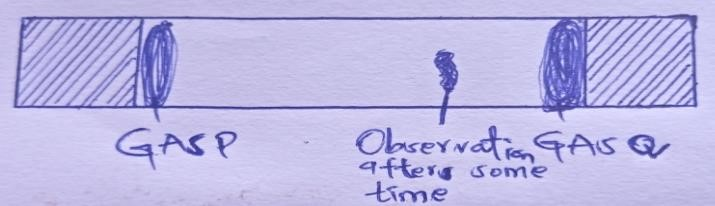 GAS P
Observation
after some
time
GAS Q